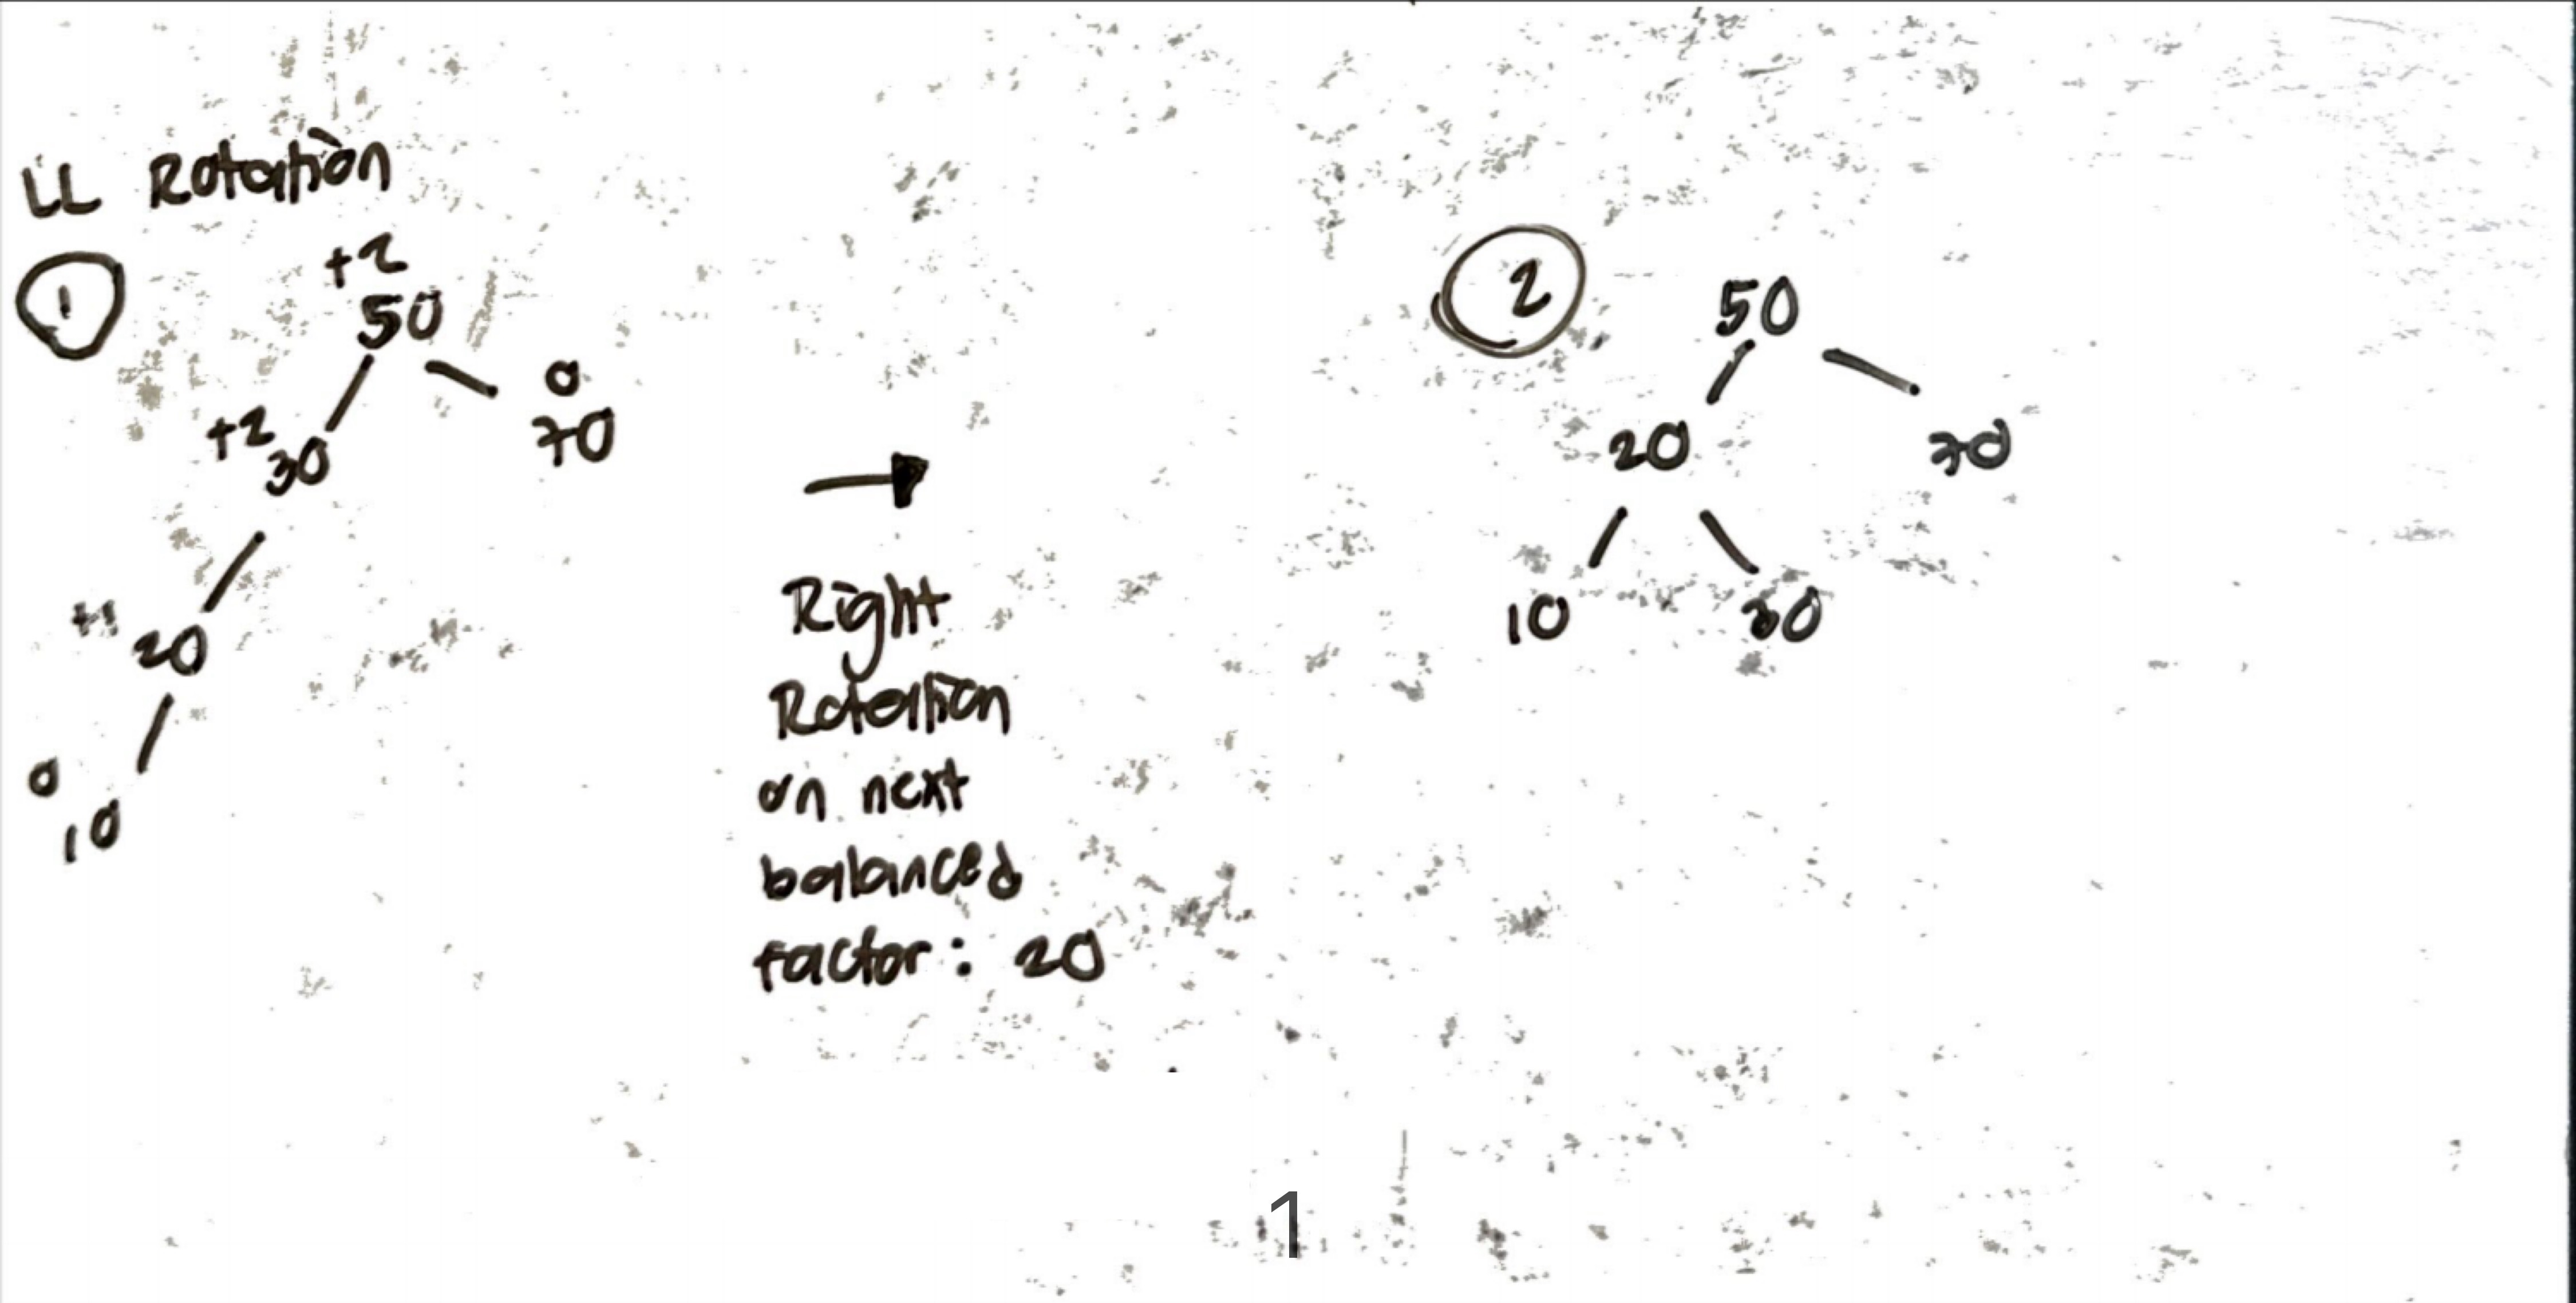 LL Rotation
1
+2
50
0
70
+2
30
+1
20
0
10
Right
Rotation
on next
balanced
factor: 20
2
50
20
70
10
30
1